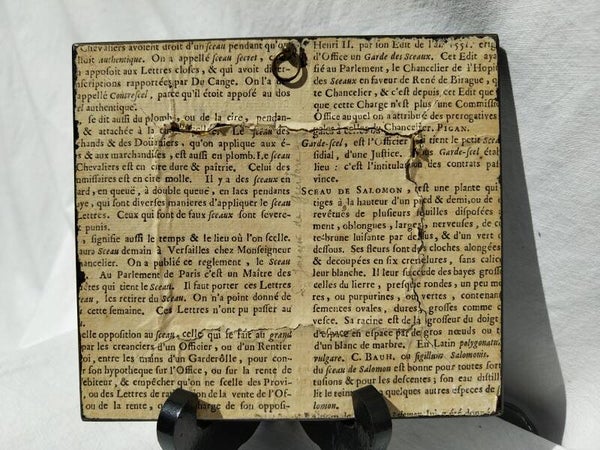 Chevaliers avoient droit d'un sceau pendant qu'on
ltuit authentique. On a appellé sceau secret, c
apposoit aux Lettres closes, & qui avoit diver-
nscriptions rapportées par Du Cange. On l'a
appellé Contrescel, parce qu'il étoit apposé au dos
authentique.
se dit aussi du plomb, ou de la cire, pendan-
& attachée à la sceau des
chands & des Douaniers, qu'on applique aux é-
s & aux marchandises, est aussi en plomb. Le sceau
Chevaliers est en cire dure & paitrie. Celui des
missaires est en cire molle. Il y a des sceaux en
ard, en queuë, à double queuë, en lacs pendants
aye, qui sont diverses manieres d'appliquer le sceau
Lettres. Ceux qui font de faux sceaux sont severe-
punis.
, signifie aussi le temps & le lieu où l'on scelle.
aura Sceau demain à Versailles chez Monseigneur
ancelier. On a publié ce reglement, le Sceau
. Au Parlement de Paris c'est un Maitre des
êtes qui tient le Sceau. Il faut porter ces Lettres
eau, les retirer du Sceau. On n'a point donné de
cette semaine. Ces Lettres n'ont pu passer au
elle opposition au sceau, celle qui se fait au grand
par les creanciers d'un Officier, ou d'un Rentier
oi, entre les mains d'un Garderôlle, pour con-
r son hypotheque sur l'Office, ou sur la rente de
ebiteur, & empêcher qu'on ne scelle des Provi-
ou des Lettres de ratification de la vente de l'Of-
ou de la rente, charge de son opposi-
Henri II. par son Edit de l'an 1551. erig
d'Office un Garde des Sceaux. Cet Edit aya
fié au Parlement, le Chancelier de l'Hopi
des Sceaux en faveur de René de Birague, q
te Chancelier, & c'est depuis cet Edit que
que cette Charge n'est plus une Commissi
Office auquel on a attribué des prerogatives
gales à celles du Chancelier. PIGAN.
Garde-scel, est l'Officier qui tient le petit Scea
sidial, d'une Justice. Garde-scel étab
lieu : c'est l'intitulation des contrats pas
vince.
SCEAU DE SALOMON, est une plante qui
tiges à la hauteur d'un pied & demi, ou de
revêtues de plusieurs feuilles disposées
ment, oblongues, larges, nerveuses, de co
te-brune luisante par dessus, & d'un vert
dessous. Ses fleurs sont des cloches alongées
& decoupées en six crenelures, sans calice
leur blanche. Il leur succede des bayes grosse
celles du lierre, presque rondes, un peu mo
res, ou purpurines, ou vertes, contenant
semences ovales, dures, grosses comme
vesce. Sa racine est de la grosseur du doigt
d'espace en espace par de gros nœuds ou t
d'un blanc de marbre. En Latin polygonatum
vulgare. C. BAUH. ou sigillum Salomonis.
du sceau de Salomon est bonne pour toutes sort
tusions & pour les descentes; son eau distill
lit le teint quelques autres especes
lomon.